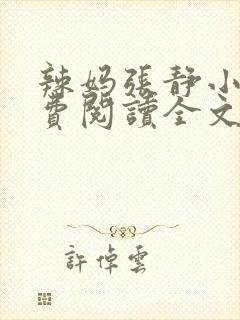 辣妈張静小
費閱讀全文
許倬雲